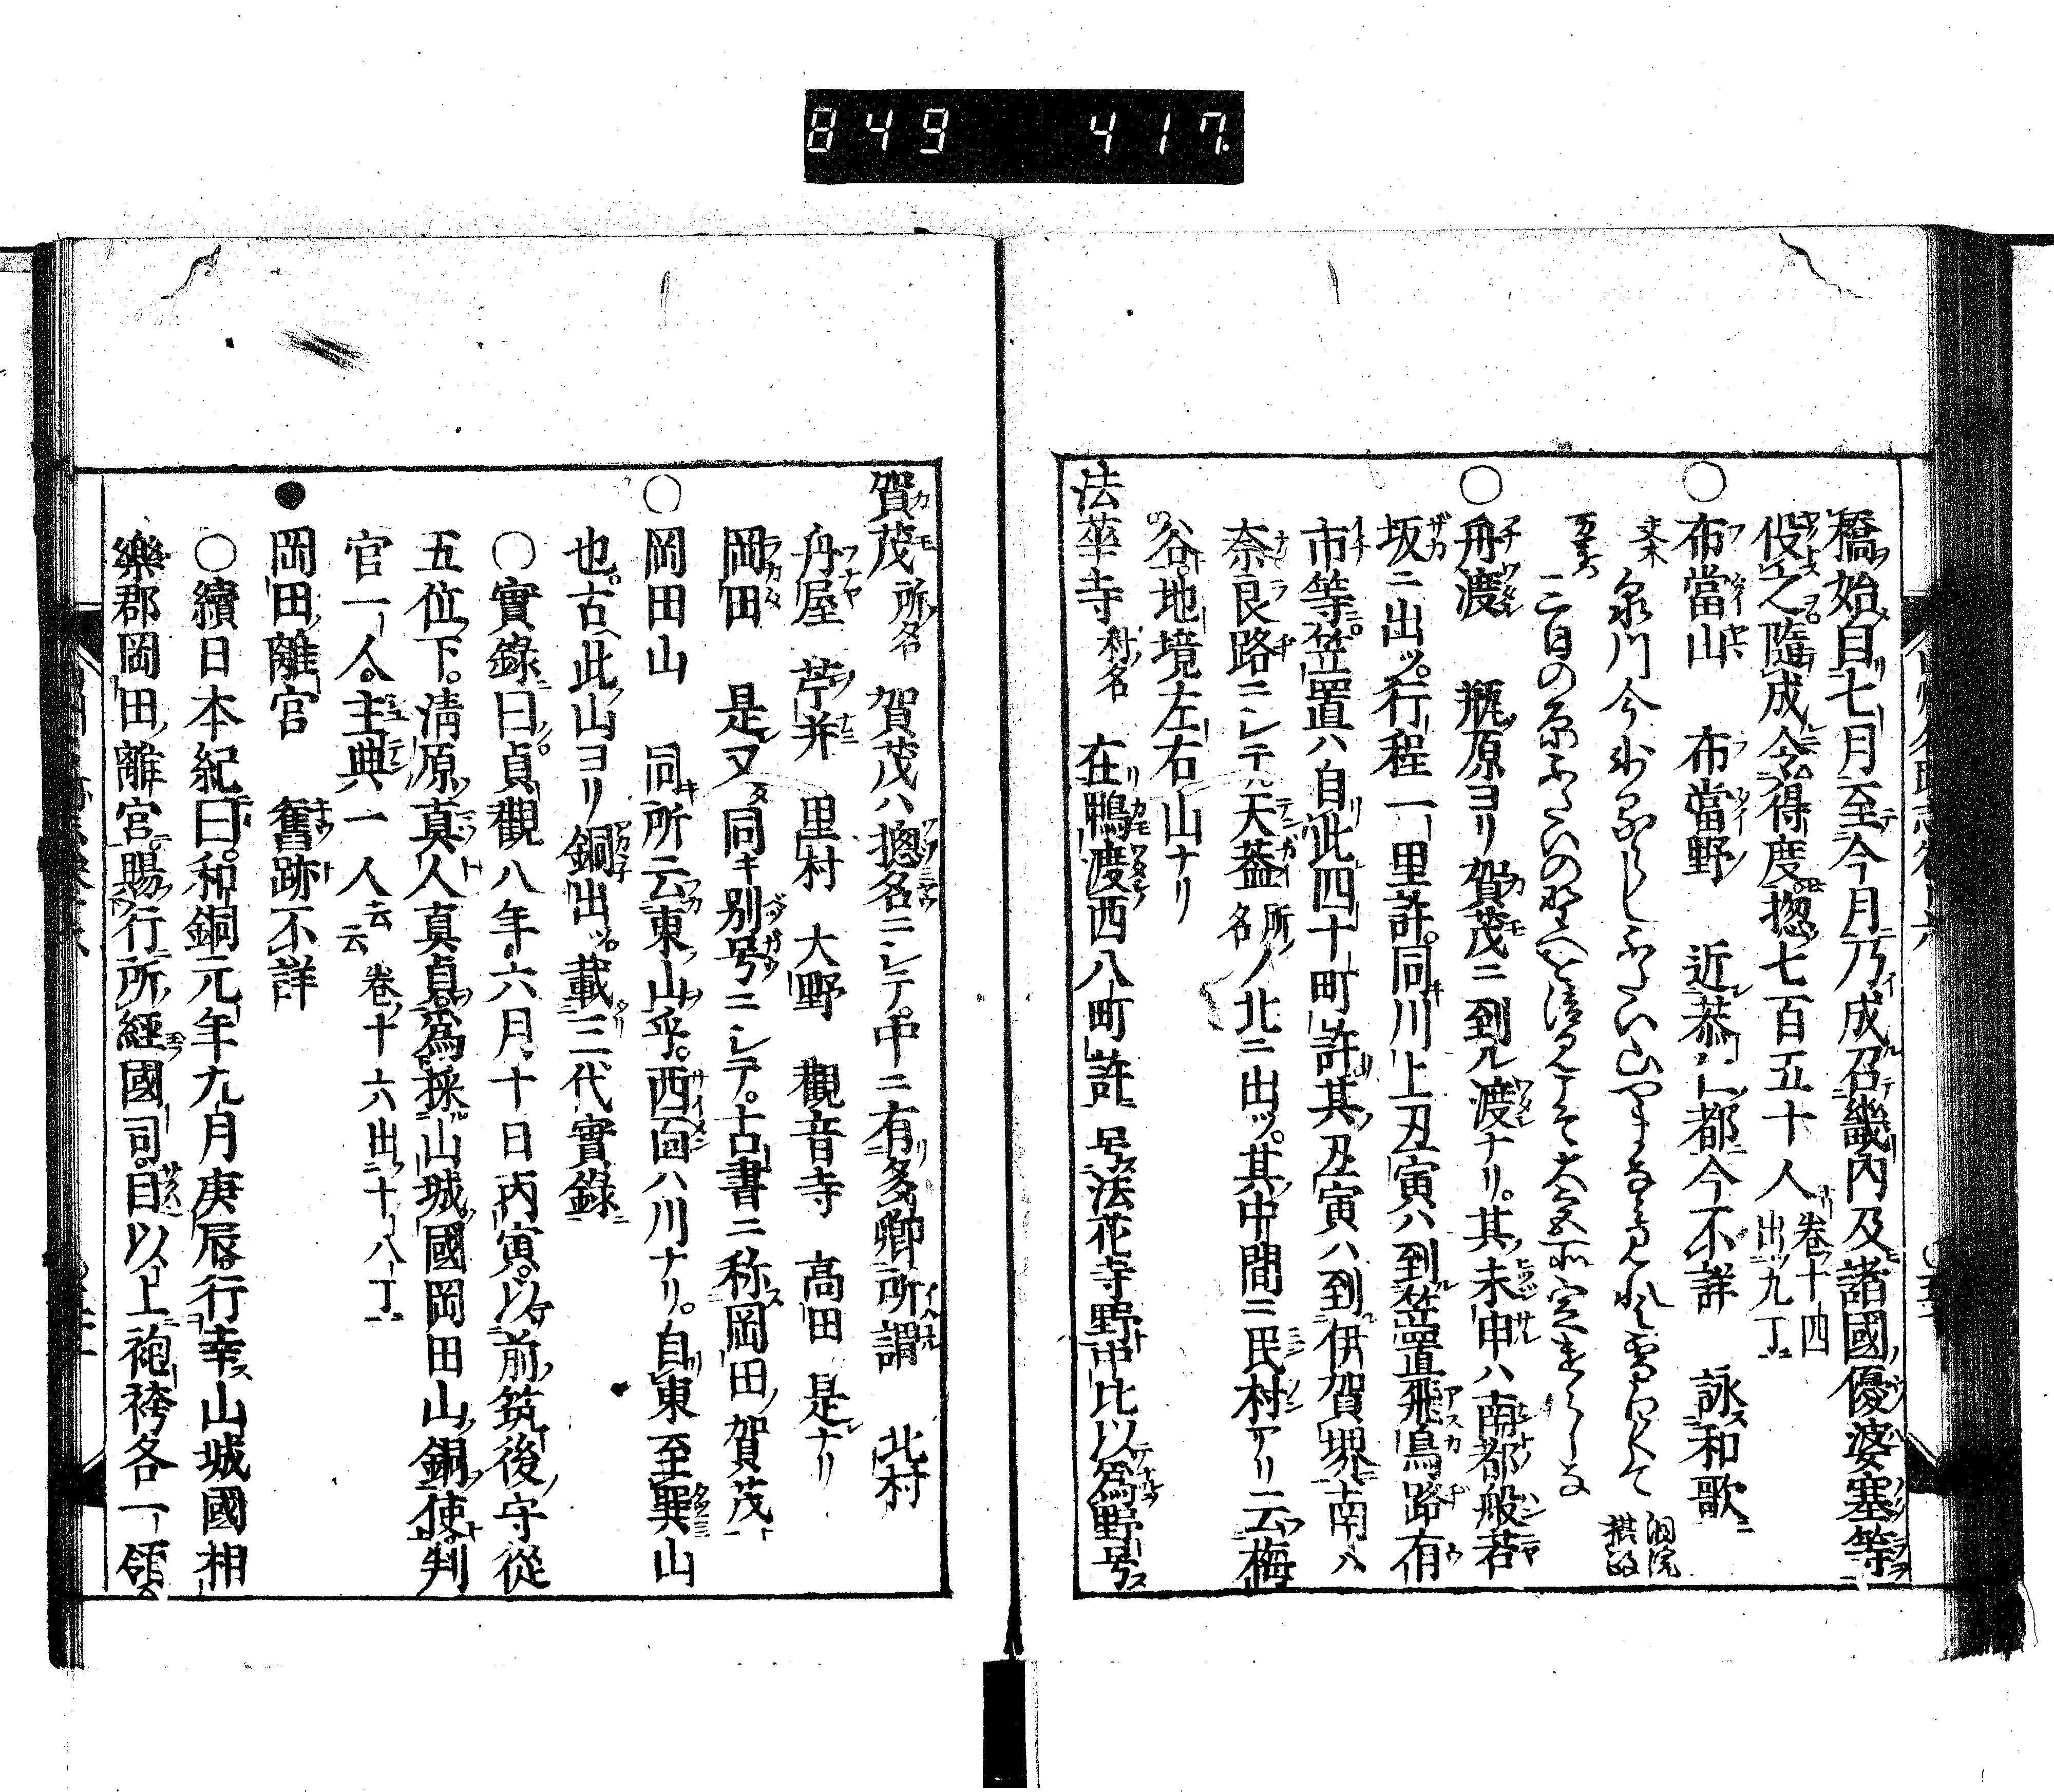 849 417
橋始自七月至今月乃成召畿内及諸國優婆塞等
役之隨成令得度揔七百五十人 卷十四出九丁
○布當山 布當野 近恭仁都今不詳 詠和歌
泉川今
三日の原
○舟渡 瓶原ヨリ賀茂ニ到ル渡ナリ其未申ハ南都般若
坂ニ出ツ行程一里許同川上丑寅ハ到笠置飛鳥路有
市等笠置ハ自此四十町許其丑寅ハ到伊賀堺南ハ
奈良路ニシテ天葢 所名 ノ北ニ出ツ其中間ニ民村アリ云梅
谷地境左右山ナリ
法華寺 村名 在鴨渡西八町許 号法花寺野中比以爲野号
賀茂 所名 賀茂ハ揔名ニシテ中ニ有多鄕所謂 北村
舟屋 芦并 里村 大野 觀音寺 高田 是ナリ
岡田 是又同キ別号ニシテ古書ニ称岡田賀茂
○岡田山 同所云東山乎西面ハ川ナリ自東至巽山
也古此山ヨリ銅出ツ載三代實錄
○實錄曰貞觀八年六月十日丙寅以前筑後守從
五位下清原真人真貞爲採山城國岡田山銅使判
官一人主典一人云云 卷十六出十八丁
●岡田離宮 舊跡不詳
○續日本紀曰和銅元年九月庚辰行幸山城國相
樂郡岡田離宮賜行所經國司目以上袍袴各一領